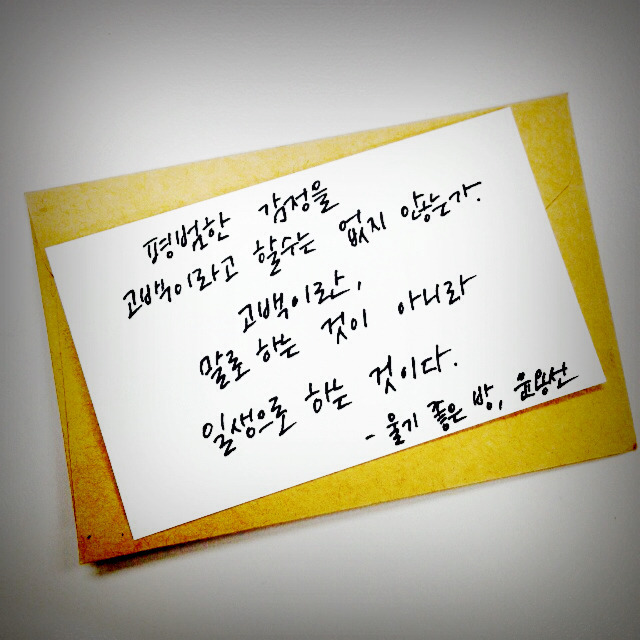 평범한 감정을
고백이라고 할수는 없지 않는가.
고백이란,
말로 하는 것이 아니라
일생으로 하는 것이다.
- 울기 좋은 방, 윤용선